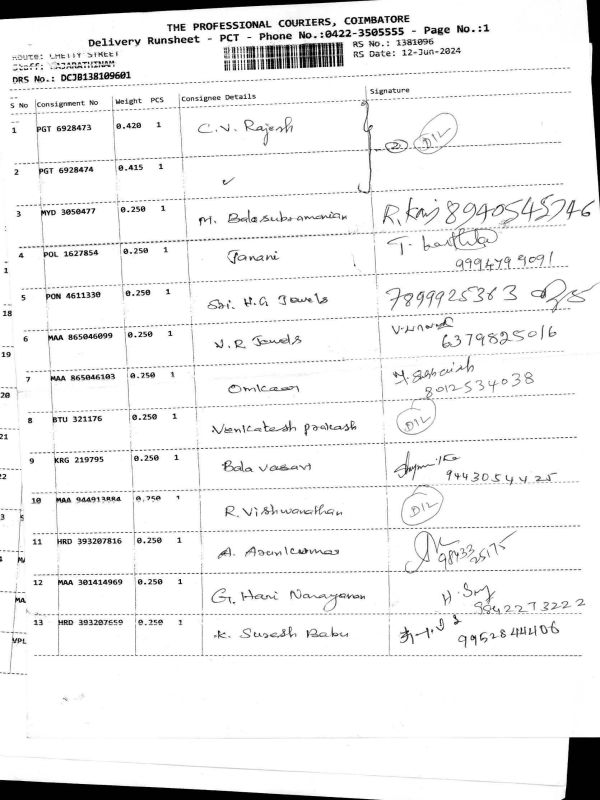 THE PROFESSIONAL COURIERS, COIMBATORE
Delivery Runsheet - PCT - Phone No.:0422-3505555 - Page No.:1
Route: CHETTY STREET
RS No.: 1381096
Staff: RAJARATHINAM
RS Date: 12-Jun-2024
DRS No.: DCJB138109601
S No Consignment No Weight PCS Consignee Details Signature
1 PGT 6928473 0.420 1 C.V. Rajesh
2 D/L
2 PGT 6928474 0.415 1 ✓
3 MYD 3050477 0.250 1 M. Balasubramanian 8940545746
4 POL 1627854 0.250 1 Janani T. karthika
9994799091
5 PON 4611330 0.250 1 Sri. H.G Jewels 7899925363
6 MAA 865046099 0.250 1 N.R Jewels
6379825016
7 MAA 865046103 0.250 1 Omkaar
8012534038
8 BTU 321176 0.250 1 Venkatesh prakash D/L
9 KRG 219795 0.250 1 Bala vasavi
9443054425
10 MAA 944913884 0.250 1 R. Vishwanathan D/L
11 HRD 393207816 0.250 1 A. Arunkumar
98433
25175
12 MAA 301414969 0.250 1 G. Hari Narayanan
9842273222
13 HRD 393207659 0.250 1 K. Suresh Babu 9952844406
18
19
20
21
MAA
VPL